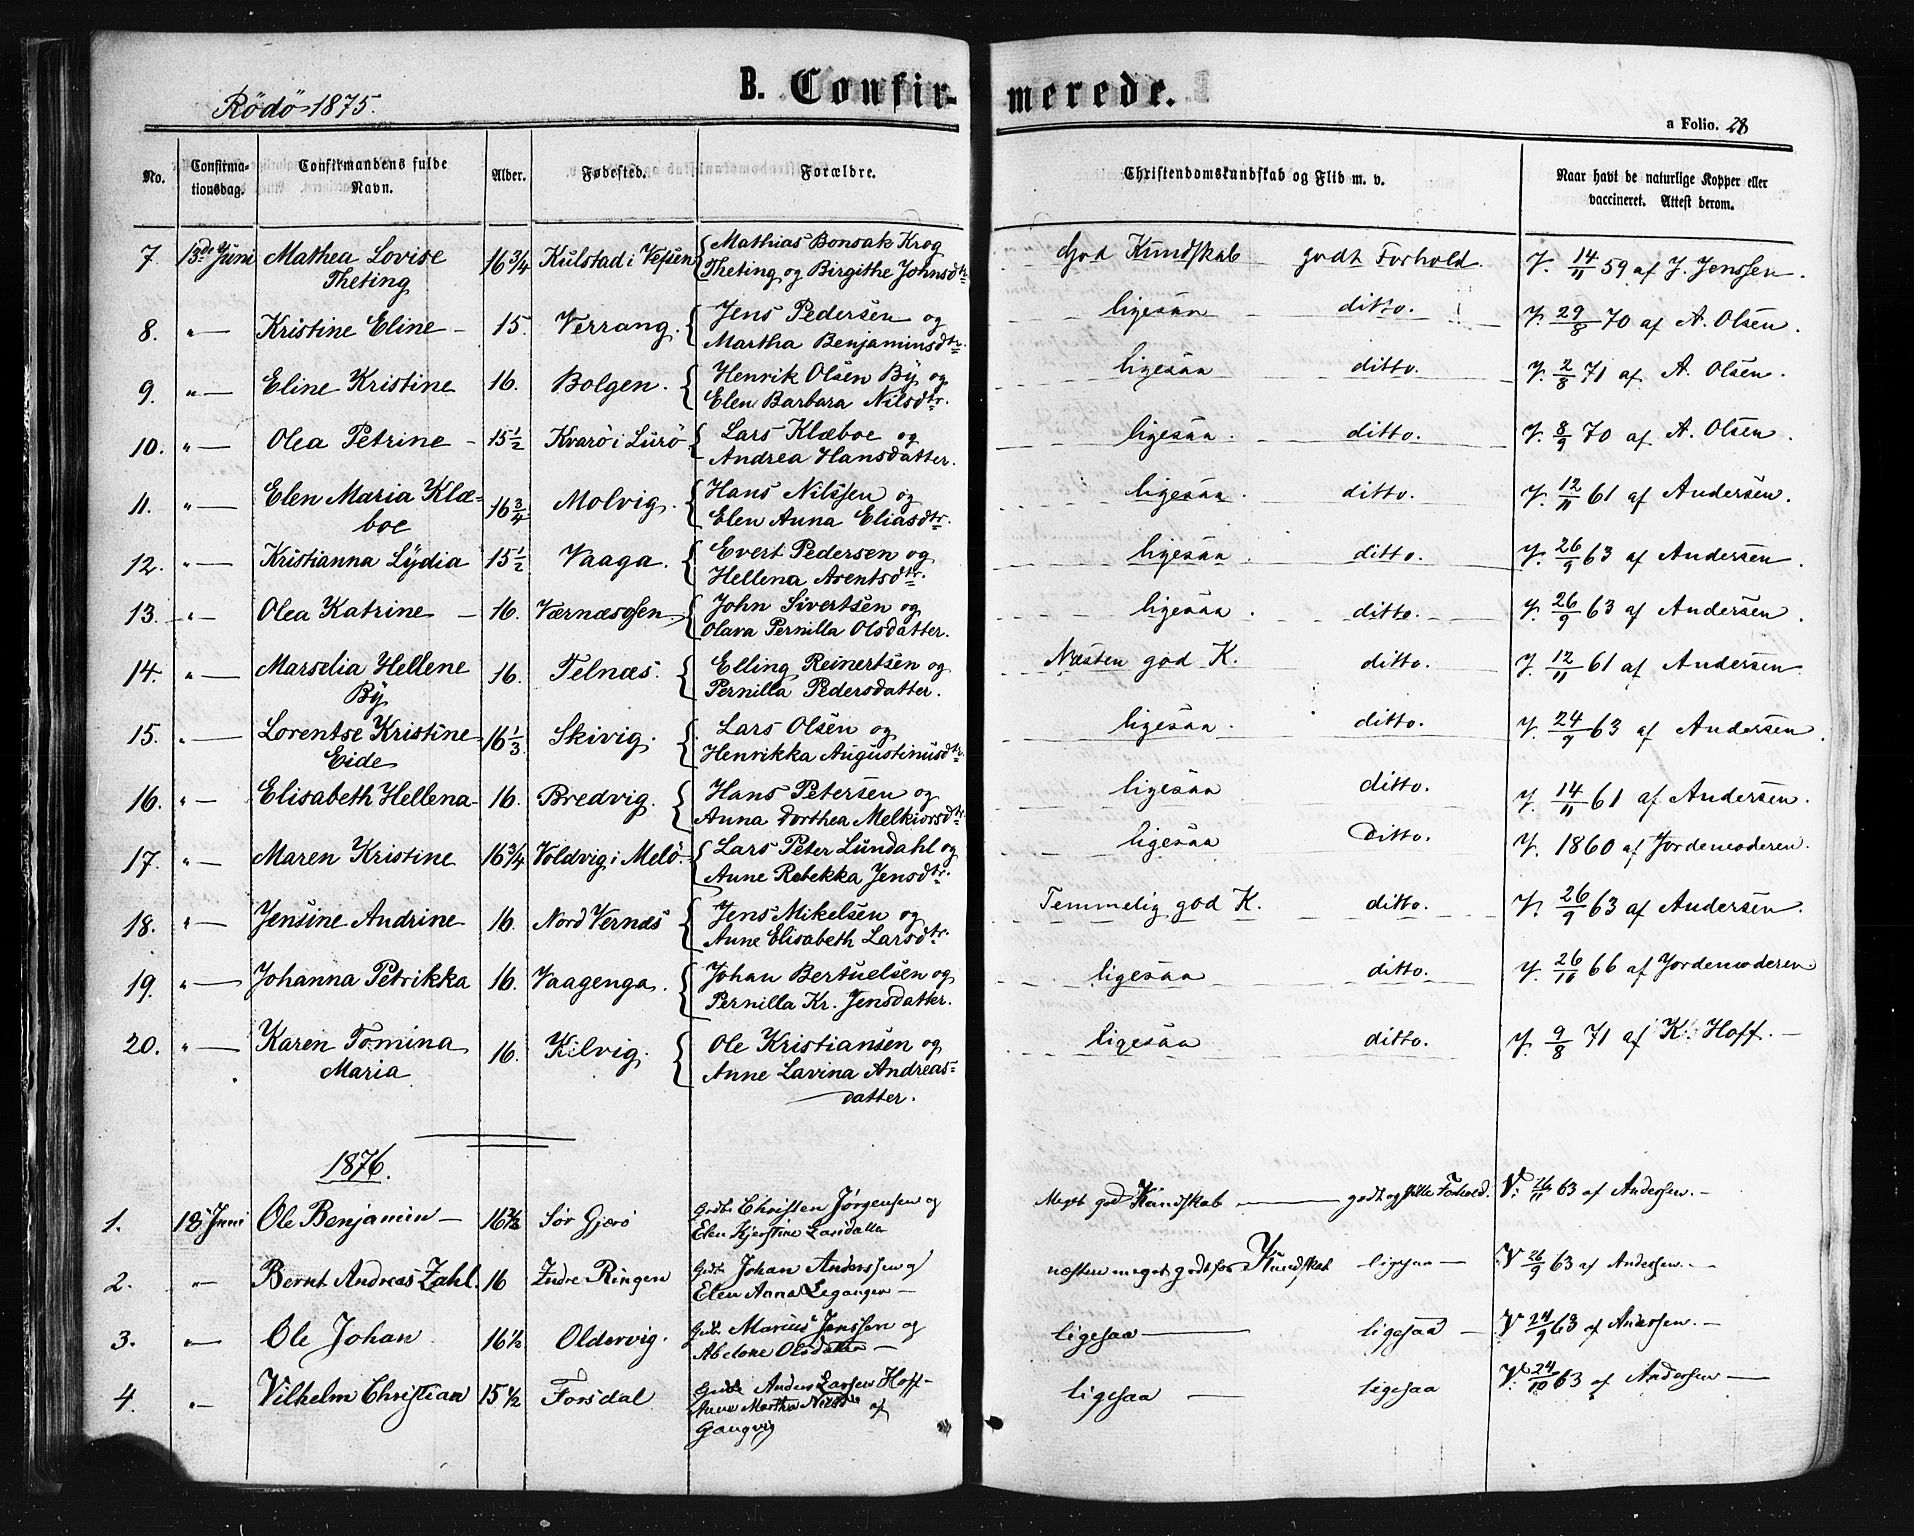 B. Confir-merede.
Rödö 1875.
a Folio. 28
No. | Confirma-tionsdag. | Confirmandens fulde Navn. | Alder. | Fødested. | Forældre. | Christendomskundskab og Flid m. v. | Naar havt de naturlige Kopper eller vaccineret. Attest derom.
7. 13de Juni Mathea Lovise 16 3/4 Kulstad i Vefsen { Mathias Bonsak Krog God Kundskab godt Forhold. V. 14/11 59 af J. Jenssen.
Theting Theting og Birgithe Johnsdtr
8. " Kristine Eline 15. Verrang. { Jens Pedersen og ligesaa ditto. V. 29/8 70 af A. Olsen.
Martha Benjaminsdtr.
9. " Eline Kristine 16. Bolgen. { Henrik Olsen Bÿ og ligesaa ditto. V. 2/8 71 af A. Olsen.
Elen Barbara Nilsdtr.
10. " Olea Petrine 15 1/2 Kvarö i Lurö { Lars Klæboe og ligesaa. ditto. V. 8/9 70 af A. Olsen.
Andrea Hansdatter.
11. " Elen Maria Klæ= 16 3/4 Molvig. { Hans Nilssen og ligesaa. ditto. V. 12/11 61 af Andersen.
boe Elen Anna Eliasdtr.
12. " Kristianna Lÿdia 15 1/2 Vaaga. { Evert Pedersen og ligesaa. ditto. V. 26/9 63 af Andersen.
Hellena Arentsdtr.
13. " Olea Katrine 16. Værnæsosen { John Sivertsen og ligesaa. ditto. V. 26/9 63 af Andersen.
Olava Pernilla Olsdatter.
14. " Marselia Hellene 16. Telnæs. { Elling Reinertsen og Næsten god K. ditto. V. 12/11 61 af Andersen.
Bÿ Pernilla Pedersdatter.
15. " Lorentse Kristine 16 1/3 Skivig. { Lars Olsen og ligesaa. ditto. V. 24/9 63 af Andersen.
Eide Henrikka Augustinusdtr.
16. " Elisabeth Hellena 16. Bredvig. { Hans Petersen og ligesaa ditto. V. 14/11 61 af Andersen.
Anna Dorthea Melkiorsdtr
17. " Maren Kristine 16 3/4 Voldvig i Melö. { Lars Peter Lundahl og ligesaa Ditto. V. 1860 af Jordemoderen.
Anne Rebekka Jensdtr.
18. " Jensine Andrine 16. Nord Vernæs { Jens Mikelsen og Temmelig god K. ditto. V. 26/9 63 af Andersen.
Anne Elisabeth Larsdtr.
19. " Johanna Petrikka 16. Vaagenga. { Johan Bertuelsen og ligesaa ditto. V. 26/10 66 af Jordemoderen
Pernilla Kr. Jensdatter.
20. " Karen Tomina 16. Kilvig. { Ole Kristiansen og ligesaa ditto. V. 9/8 71 af K. Hoff.
Maria Anne Lavina Andreas=
datter.
1876.
1. 18 Juni Ole Benjamin 16 2/3 Sör Gjærö Gdbr. Christen Jørgensen og Meget god Kundskab godt og stille Forhold. V. 26/11 63 af Andersen.
Elen Kjerstine
2. " Bernt Andreas Zahl 16 Indre Ringen Gdbr. Johan Anderssen og næsten meget godt for Kundskab ligesaa V 26/9 63 af Andersen.
Elen Anna
3. " Ole Johan 16 1/2 Oldervig. Gdbr. Marius Jenssen og ligesaa ligesaa V 24/9 63 af Andersen.
Abelone Olsdatter
4 " Vilhelm Christian 15 1/2 Forsdal Gdbr. Anders Larsen Hoff ligesaa ligesaa V. 24/10 63 af Andersen
Anne Martha af
Gangvig